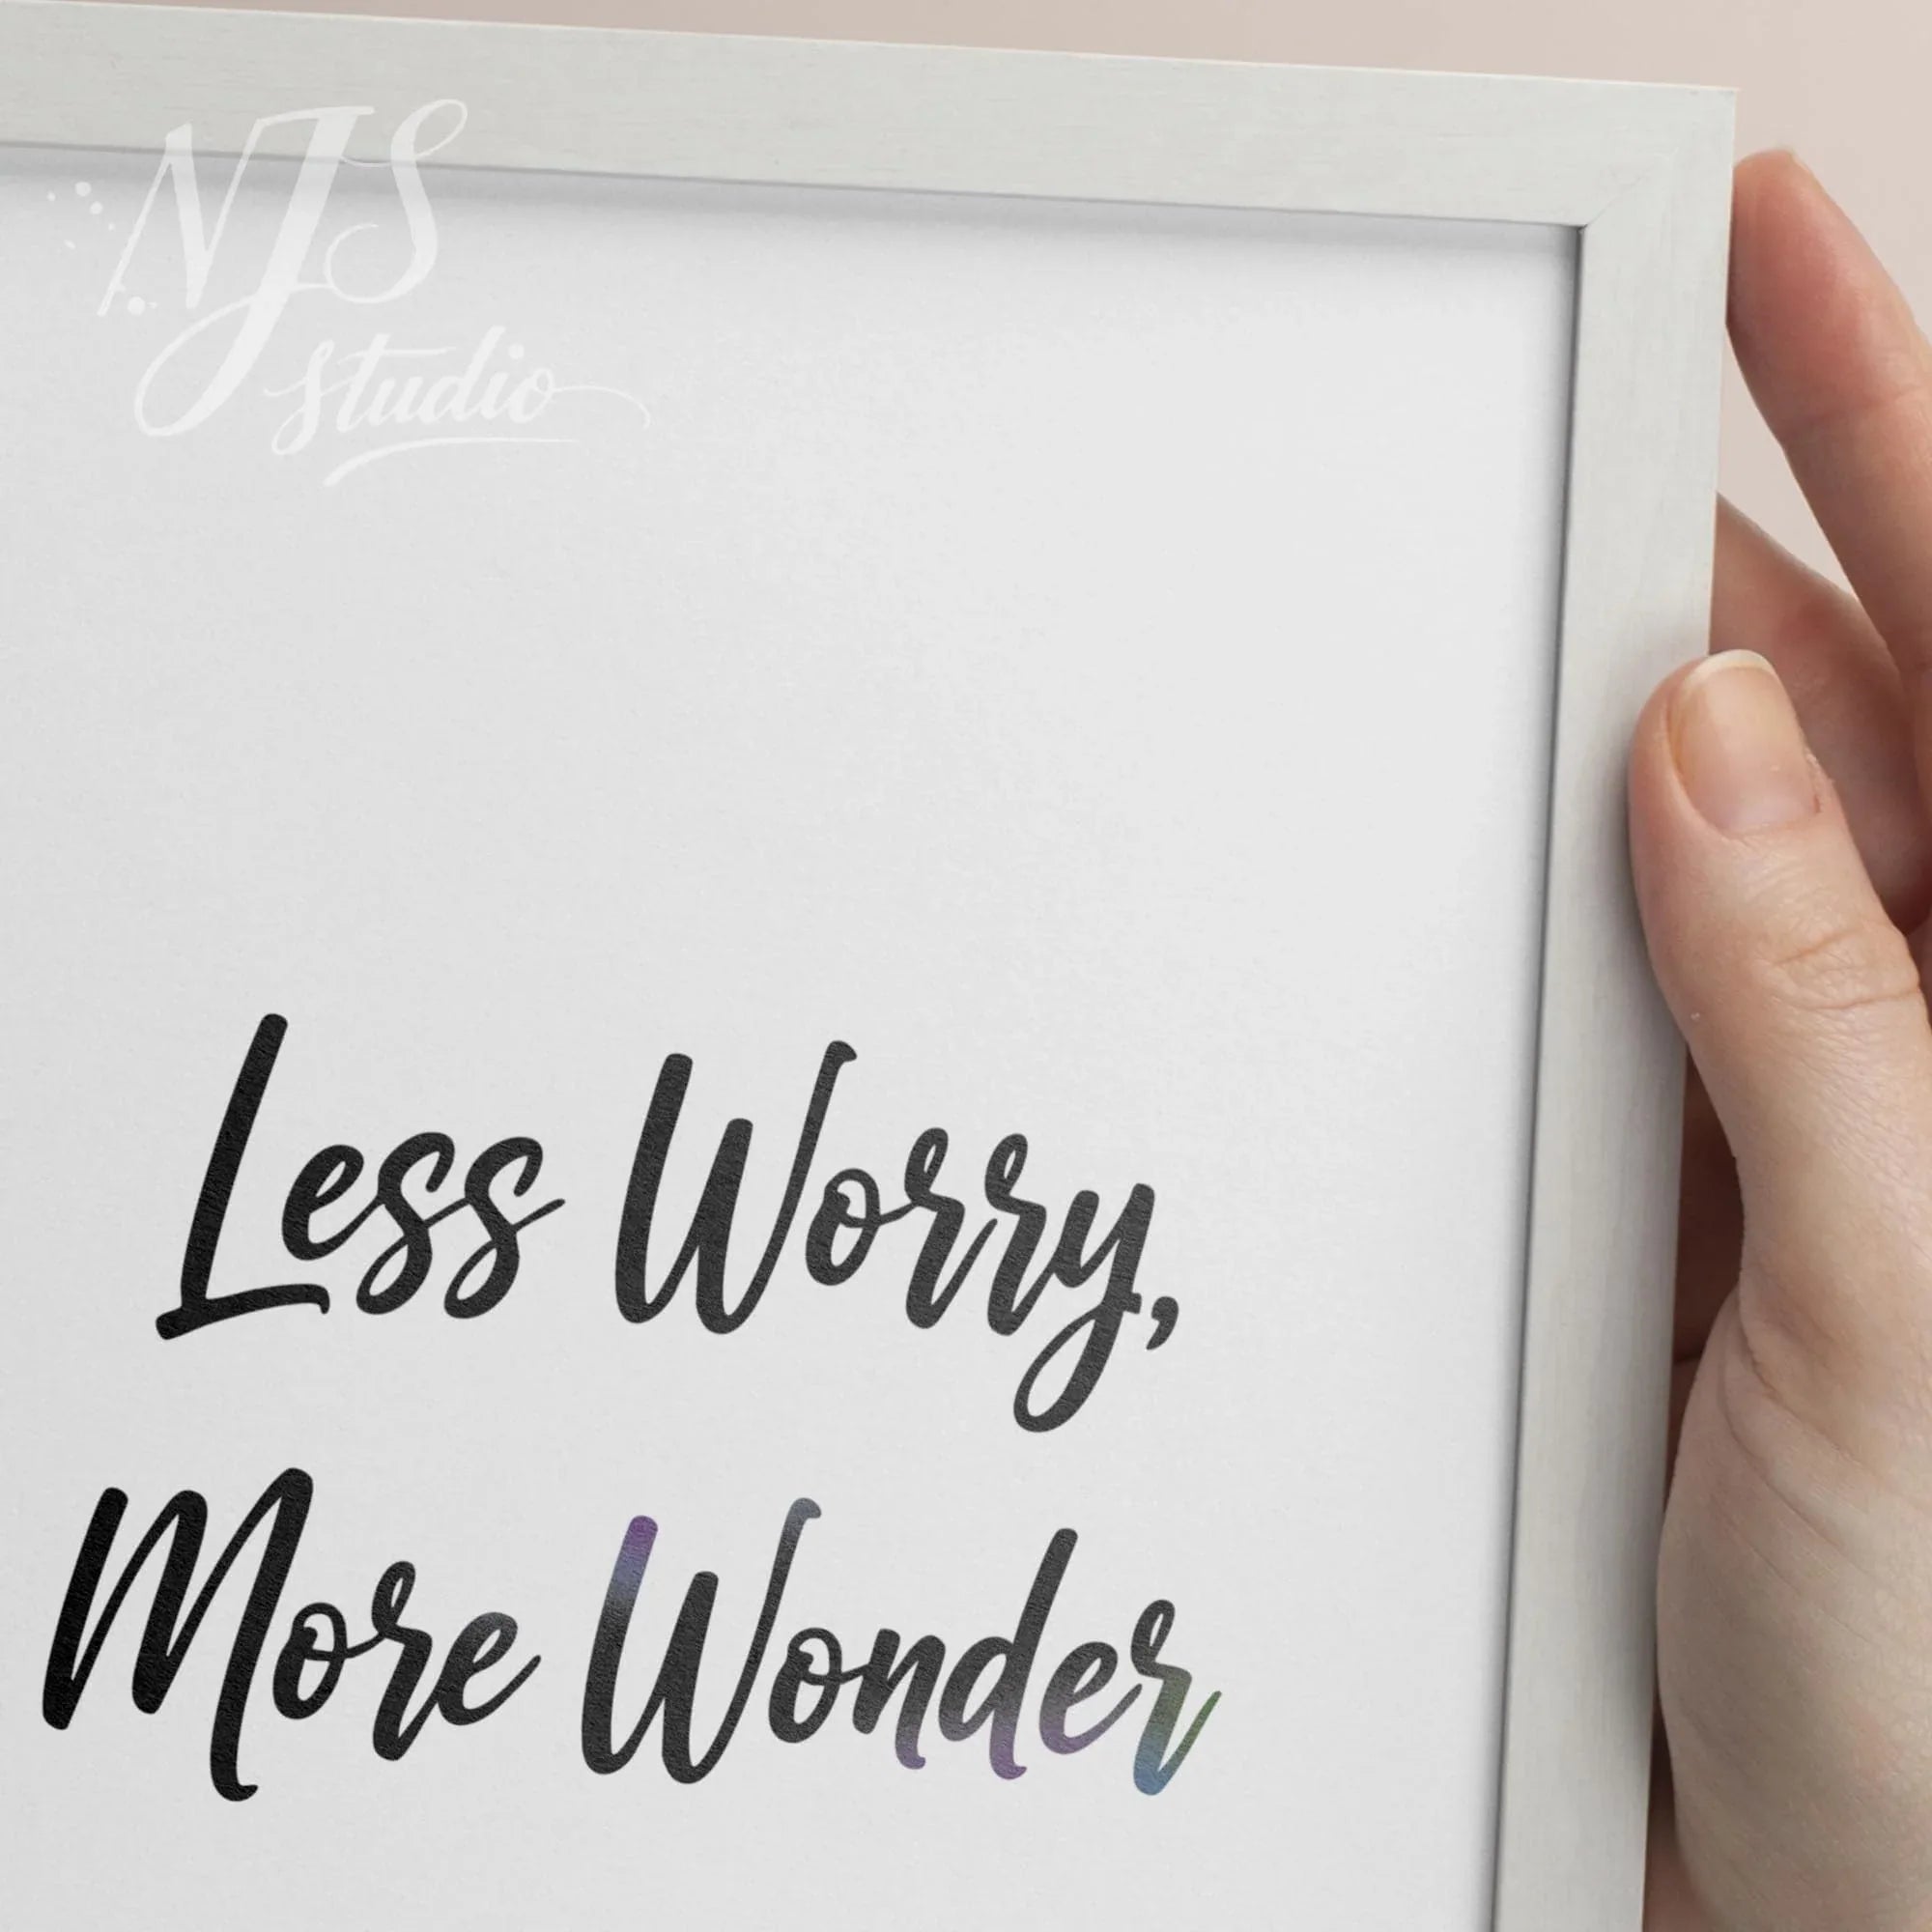 NJS
Studio
Less Worry,
More Wonder